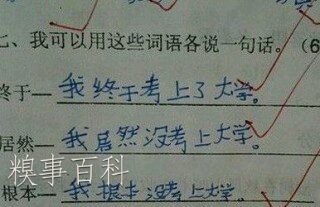 七、我可以用这些词语各说一句话。(6
终于—我终于考上了大学。
居然—我居然没考上大学。
根本—我根本没考上大学。
糗事百科